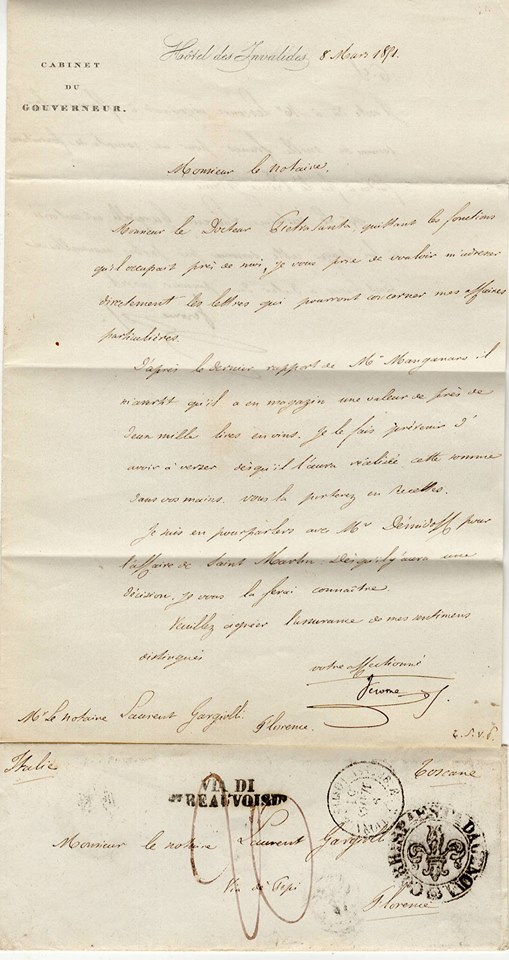 Hôtel des Invalides 8 Mars 1851.
CABINET
DU
GOUVERNEUR.
Monsieur le notaire.
Monsieur le Docteur Pietra Santa, quittant les fonctions
qu'il occupait près de moi, je vous prie de vouloir m'adresser
directement les lettres qui pourront concerner mes affaires
particulières.
D'après le dernier rapport de Mr Manganaro il
m'avertit qu'il a en magazin une valeur de près de
deux mille lires en vins. Je le fais prévenir d'
avoir à verser dèsqu'il l'aura réalisée cette somme
dans vos mains. vous la porterez en Recettes.
Je suis en pourparlers avec Mr Démidoff pour
l'affaire de Saint Martin. Dèsqu'il y aura une
décision, je vous la ferai connaître.
Veuillez agréer l'assurance de mes sentimens
distingués
votre affectionné
Jérome
Mr Le notaire Laurent Gargiolli. Florence.
T. S. V. P.
Italie
Toscane
VIA DI
PT BEAUVOISIN
Monsieur le notaire Laurent Gargiolli
Via de' Pepi
Florence